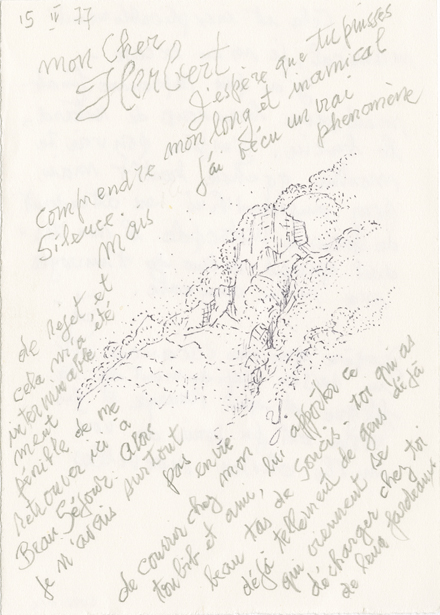 15 IV 77
mon cher
Herbert
J'espère que tu puisses
comprendre mon long et inamical
Silence. Mais j'ai vécu un vrai
phénomène
de rejet et
cela m'a été
interminable
ment
pénible de me
retrouver ici a
Beau Séjour. Alors
Je n'avais surtout
pas envie
de courrir chez mon
toubib et ami, lui apporter ce
beau tas de soucis. toi qui as
déjà tellement de gens déjà
qui viennent se
décharger chez toi
de leur fardeaux